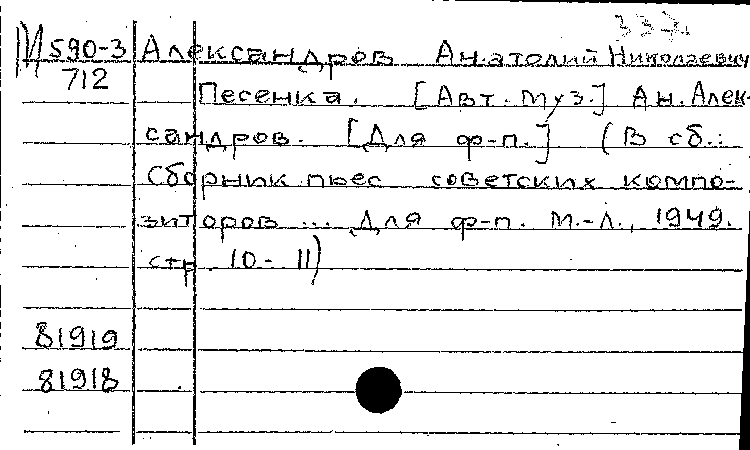 337.
М 590-3 Александров Анатолий Николаевич
712
Песенка. [Авт. муз.] Ан. Алек-
сандров. [Для ф-п.] (В сб.:
Сборник пьес советских компо-
зиторов ... Для ф-п. М.-Л., 1949.
стр. 10-11)
81919
81918